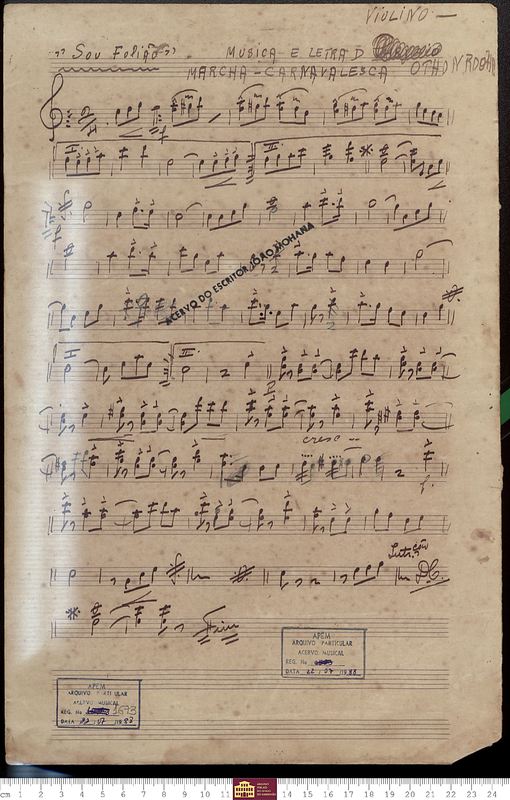 VIOLINO —
"Sou Folião" MUSICA E LETRA D
MARCHA - CARNAVALESCA
I. II.
ACERVO DO ESCRITOR JOÃO MOHANA
I II.
P
cresc --
f.
Introdução
D.C.
Fim
APEM
ARQUIVO PARTICULAR
ACERVO MUSICAL
REG. No
DATA 22 / 07 / 1988
APEM
ARQUIVO PARTICULAR
ACERVO MUSICAL
REG. No 1673
DATA 22 / 07 / 1988
cm 1 2 3 4 5 6 7 8 9 10 11 12 13 14 15 16 17 18 19 20 21 22 23 24